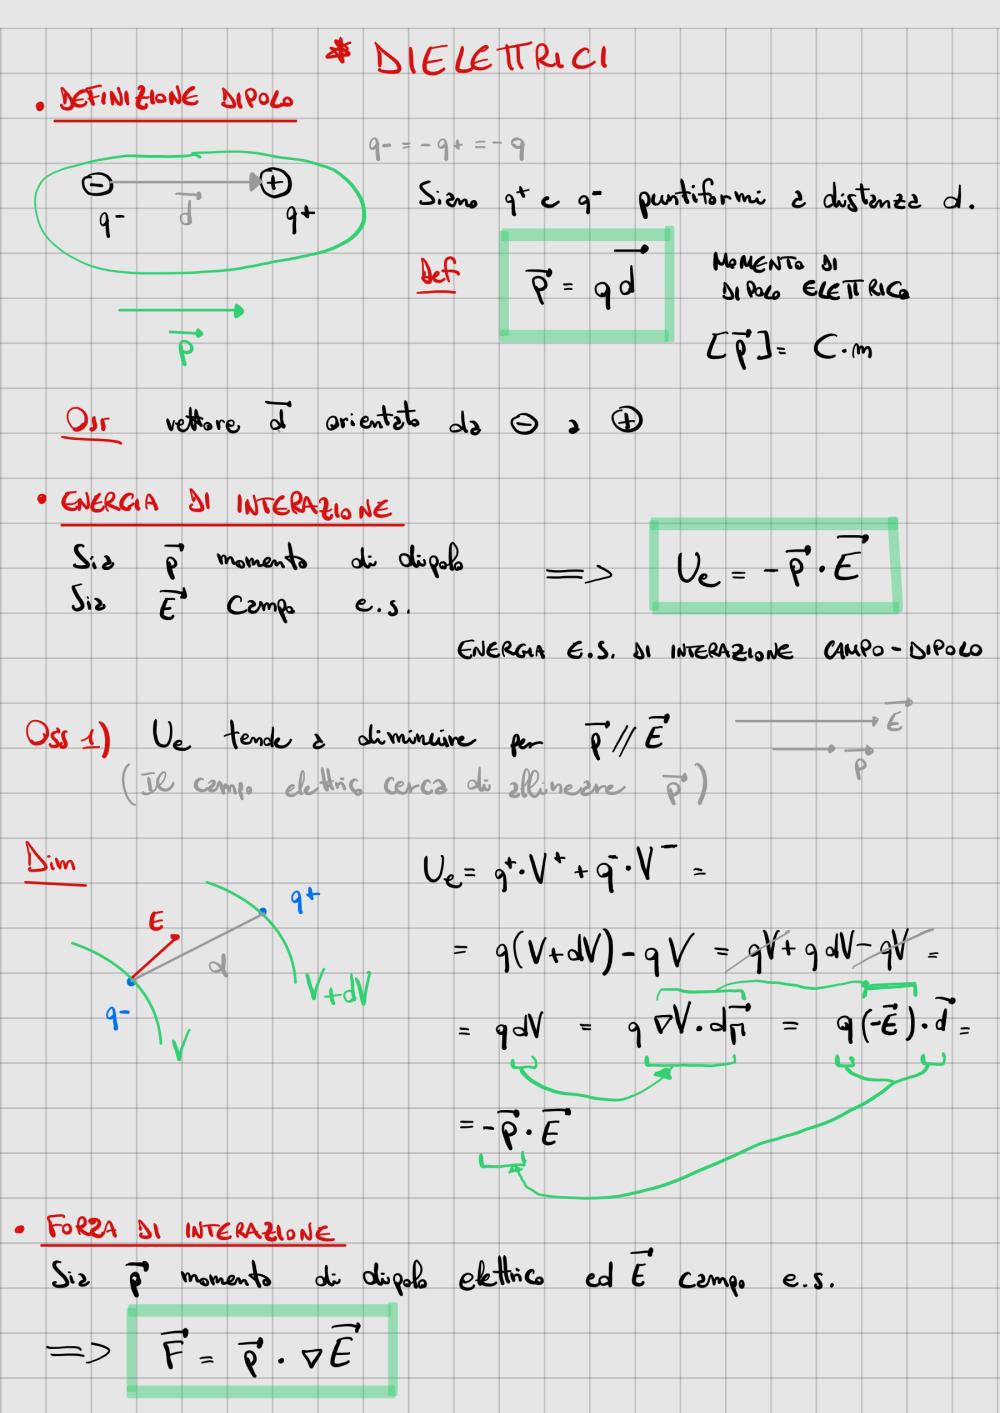 * DIELETTRICI
• DEFINIZIONE DIPOLO
q- = -q+ = -q
⊖ d⃗ ⊕
q- q+
Siano q⁺ e q⁻ puntiformi a distanza d.
Def p⃗ = q d⃗
MOMENTO DI
DIPOLO ELETTRICO
p⃗
[p⃗] = C·m
Oss vettore d⃗ orientato da ⊖ a ⊕
• ENERGIA DI INTERAZIONE
Sia p⃗ momento di dipolo
Sia E⃗ campo e.s.
=> Ue = -p⃗ · E⃗
ENERGIA E.S. DI INTERAZIONE CAMPO-DIPOLO
Oss 1) Ue tende a diminuire per p⃗ // E⃗
E⃗
p⃗
(Il campo elettrico cerca di allineare p⃗)
Dim
Ue = q⁺·V⁺ + q⁻·V⁻ =
E d q+
q- V V+dV
= q(V+dV) - qV = qV + q dV - qV =
= q dV = q ∇V · dr⃗ = q(-E⃗) · d⃗ =
= -p⃗ · E⃗
• FORZA DI INTERAZIONE
Sia p⃗ momento di dipolo elettrico ed E⃗ campo e.s.
=> F⃗ = p⃗ · ∇E⃗